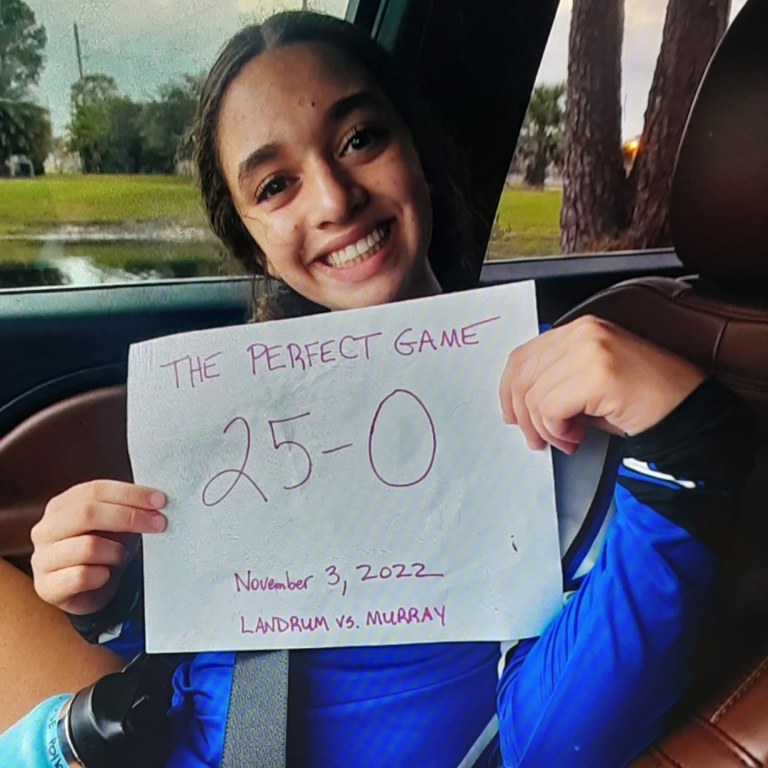 THE PERFECT GAME
25-0
November 3, 2022
LANDRUM vs. MURRAY